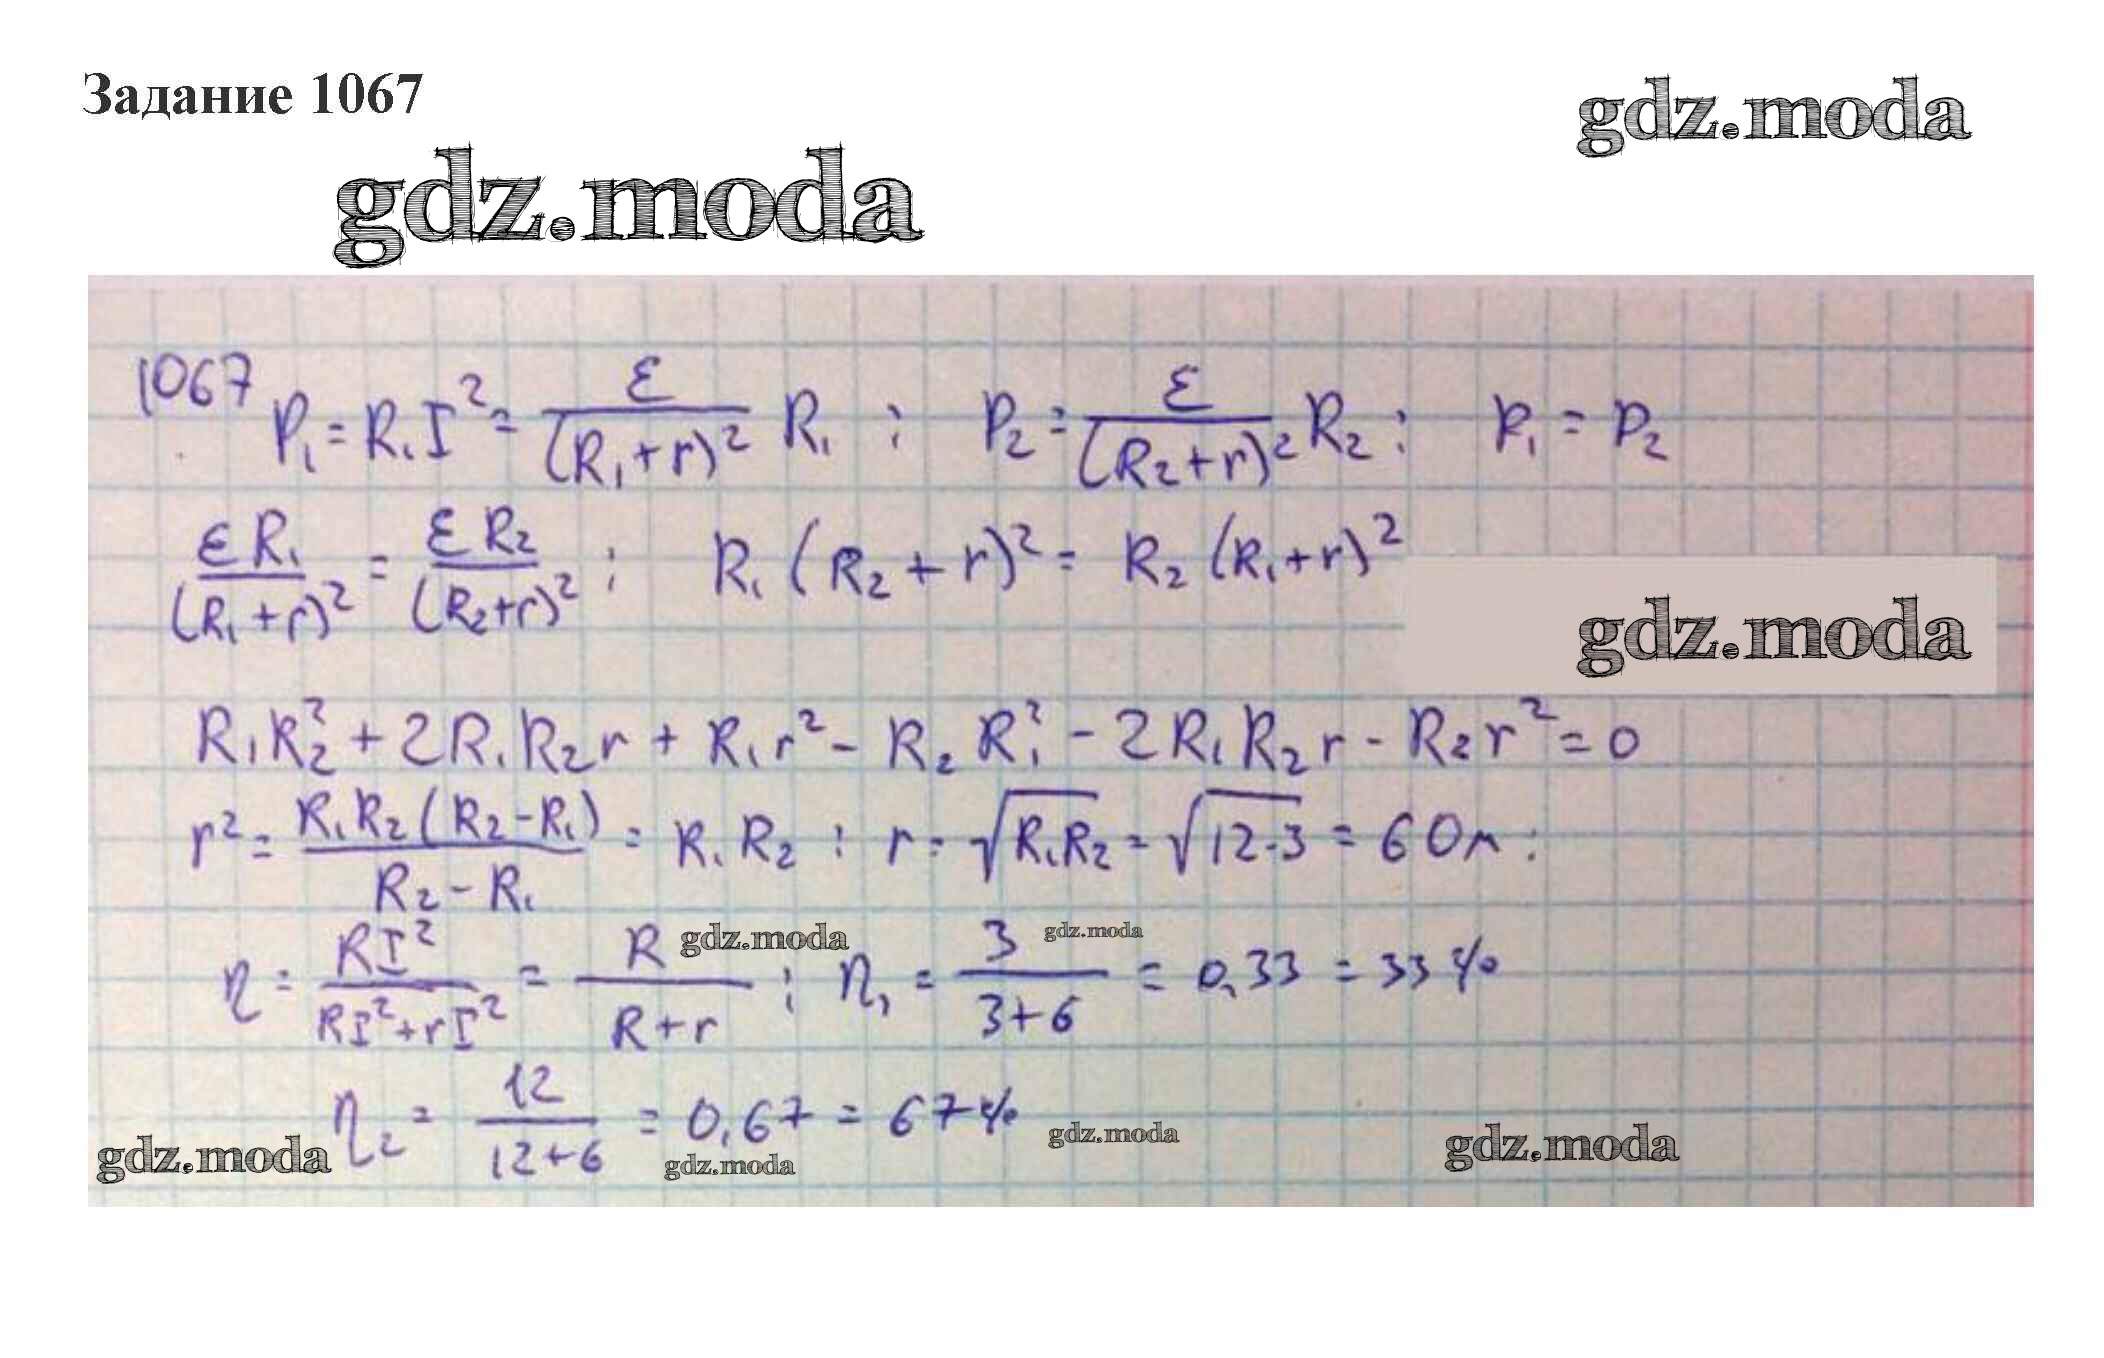 Задание 1067
gdz.moda
gdz.moda
1067 P₁ = R₁I² = ε/(R₁+r)² R₁ ; P₂ = ε/(R₂+r)² R₂ ; P₁ = P₂
εR₁/(R₁+r)² = εR₂/(R₂+r)² ; R₁(R₂+r)² = R₂(R₁+r)²
gdz.moda
R₁R₂² + 2R₁R₂r + R₁r² - R₂R₁² - 2R₁R₂r - R₂r² = 0
r² = R₁R₂(R₂-R₁)/R₂-R₁ = R₁R₂ ; r = √R₁R₂ = √12·3 = 6 Ом ;
gdz.moda gdz.moda
η = RI²/RI²+rI² = R/R+r ; η₁ = 3/3+6 = 0,33 = 33%
η₂ = 12/12+6 = 0,67 = 67%
gdz.moda gdz.moda gdz.moda gdz.moda